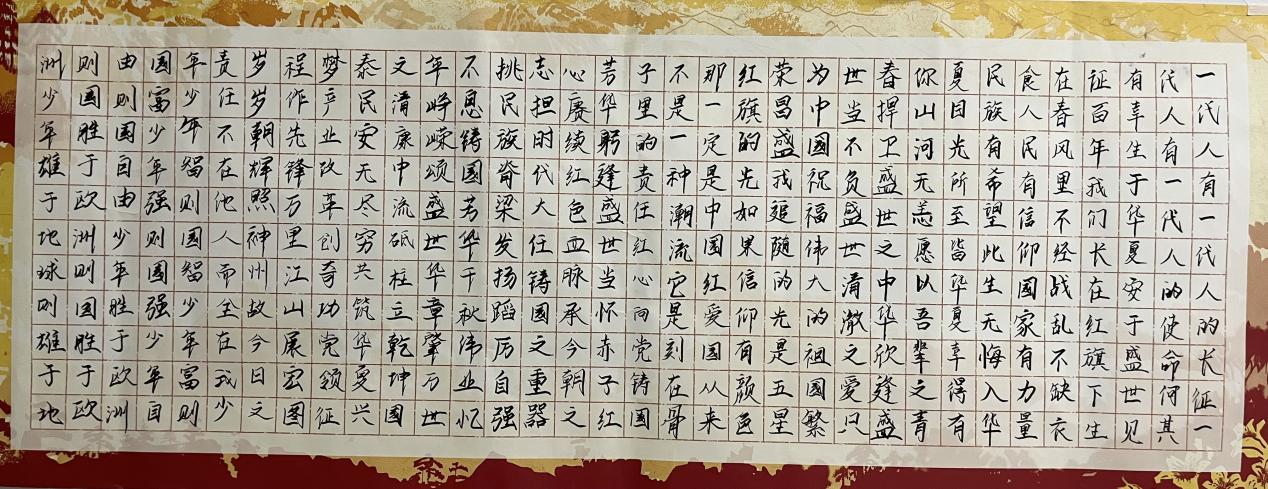 一代人有一代人的长征一
代人有一代人的使命何其
有幸生于华夏安于盛世见
证百年我们长在红旗下生
在春风里不经战乱不缺衣
食人民有信仰国家有力量
民族有希望此生无悔入华
夏目光所至皆华夏幸得有
你山河无恙愿以吾辈之青
春捍卫盛世之中华欣逢盛
世当不负盛世清澈之爱只
为中国祝福伟大的祖国繁
荣昌盛我追随的光是五星
红旗的光如果信仰有颜色
那一定是中国红爱国从来
不是一种潮流它是刻在骨
子里的责任红心向党铸国
芳华躬逢盛世当怀赤子红
心赓续红色血脉承今朝之
志担时代大任铸国之重器
挑民族脊梁发扬蹈厉自强
不息铸国芳华千秋伟业忆
年峥嵘颂盛世华章肇万世
文清康中流砥柱立乾坤国
泰民安无尽穷共筑华夏兴
梦产业改革创奇功党领征
程作先锋万里江山展宏图
岁岁朝辉照神州故今日文
责任不在他人而全在我少
年少年智则国智少年富则
国富少年强则国强少年自
由则国自由少年胜于欧洲
则国胜于欧洲则国胜于欧
洲少年雄于地球则雄于地